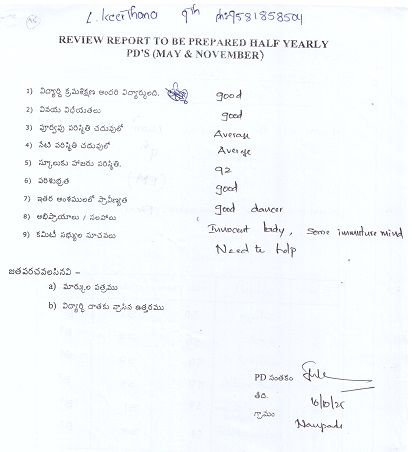 L. Keerthana 9th ph: 9581858504
REVIEW REPORT TO BE PREPARED HALF YEARLY
PD'S (MAY & NOVEMBER)
1) విద్యార్థి క్రమశిక్షణ అందరి విద్యార్థులది. good
2) వినయ విధేయతలు good
3) పూర్వపు పరిస్థితి చదువులో Average
4) నేటి పరిస్థితి చదువులో Average
5) స్కూలుకు హాజరు పరిస్థితి. 92
6) పరిశుభ్రత good
7) ఇతర అంశములలో ప్రావీణ్యత good dancer
8) అభిప్రాయాలు / సలహాలు Innocent lady, some immature mind
9) కమిటీ సభ్యుల సూచవలు Need to help
జతపరచవలసినవి –
a) మార్కుల పత్రము
b) విద్యార్థి దాతకు వ్రాసిన ఉత్తరము
PD సంతకం
తేది.
గ్రామం Naupada